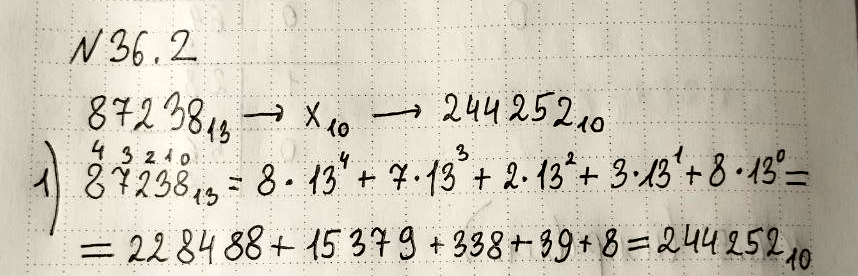 N 36.2
87238₁₃ → X₁₀ → 244252₁₀
4 3 2 1 0
1) 87238₁₃ = 8 · 13⁴ + 7 · 13³ + 2 · 13² + 3 · 13¹ + 8 · 13⁰ =
= 228488 + 15379 + 338 + 39 + 8 = 244252₁₀